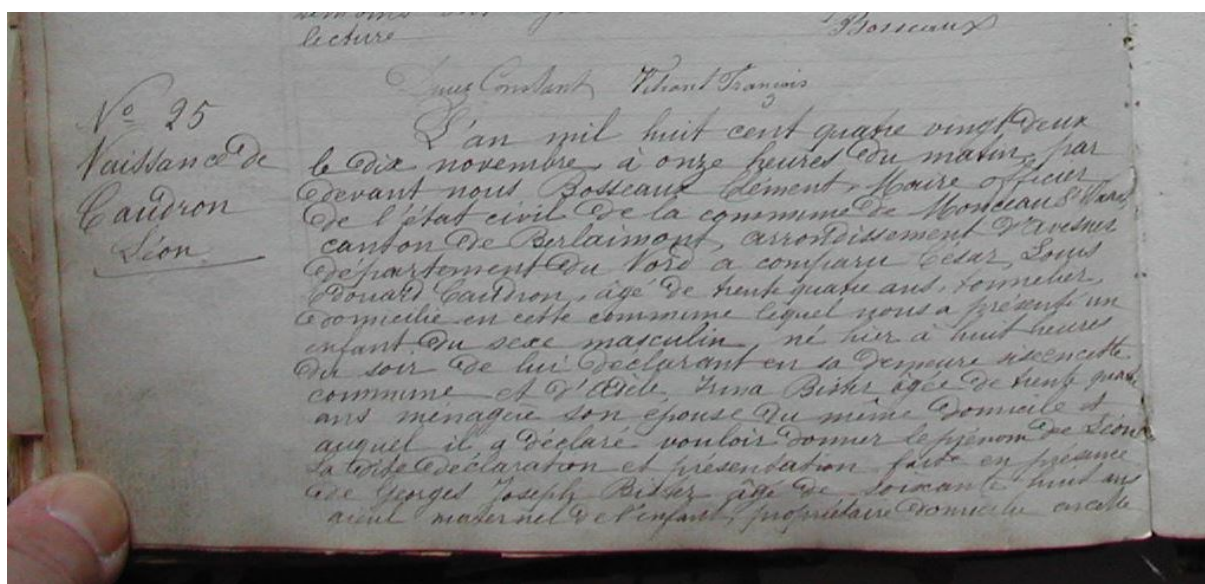 témoins
lecture
Bosseaux
Constant François
N° 25
Naissance de
Caudron
Léon
L'an mil huit cent quatre vingt deux
le dix novembre à onze heures du matin, par
devant nous Bosseaux Clément, Maire officier
de l'état civil de la commune de Monceau St Waast,
canton de Berlaimont, arrondissement d'Avesnes
département du Nord a comparu César, Louis
Edouard Caudron, âgé de trente quatre ans, tonnelier,
domicilié en cette commune lequel nous a présenté un
enfant du sexe masculin, né hier à huit heures
du soir de lui déclarant en sa demeure sise en cette
commune et d'Adèle, Irma âgée de trente quatre
ans ménagère son épouse du même domicile et
auquel il a déclaré vouloir donner le prénom de Léon
la dite déclaration et présentation faite en présence
de Georges Joseph âgé de soixante huit ans
aieul maternel de l'enfant, propriétaire domicilié en cette